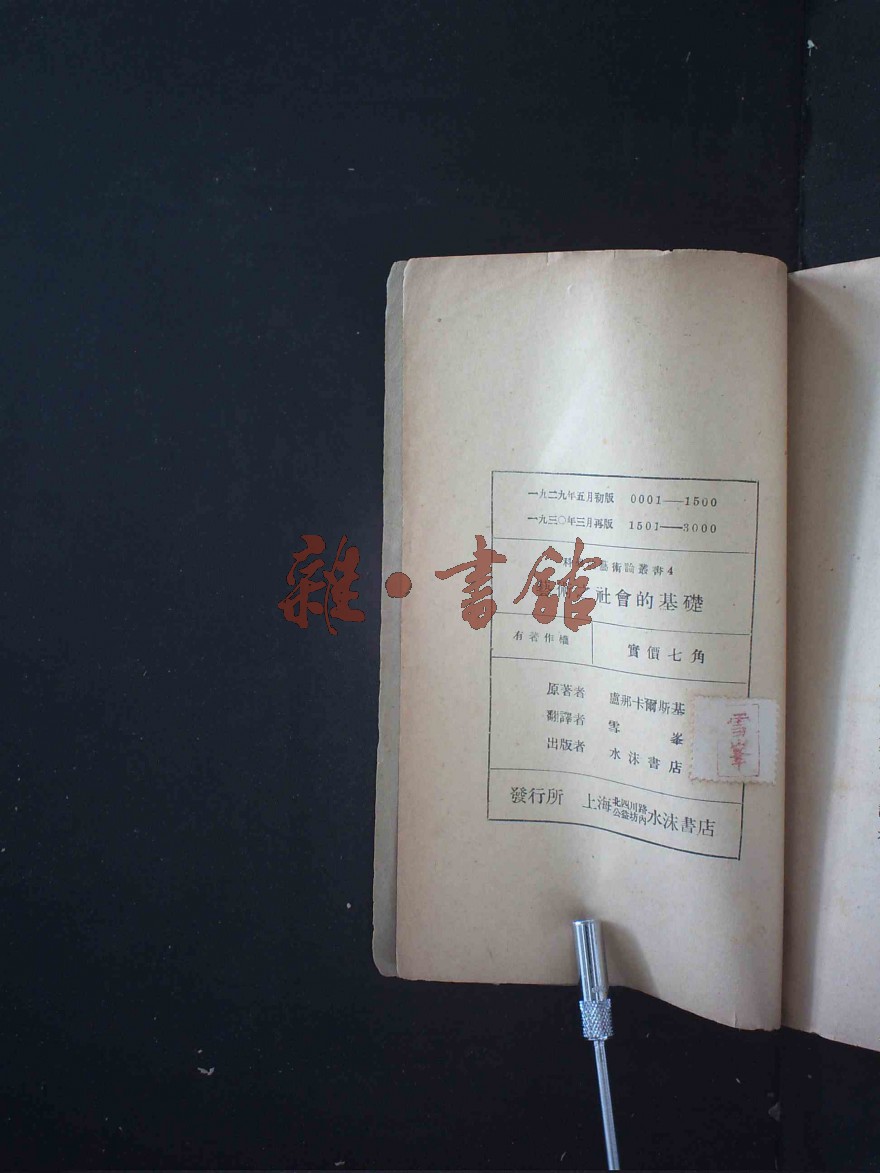 一九二九年五月初版 0001—1500
一九三〇年三月再版 1501—3000
科 藝術論叢書4
社會的基礎
有著作權
實價七角
原著者 盧那卡爾斯基
翻譯者 雪峯
出版者 水沫書店
雪峯
發行所 上海北四川路公益坊內水沫書店
雜·書館